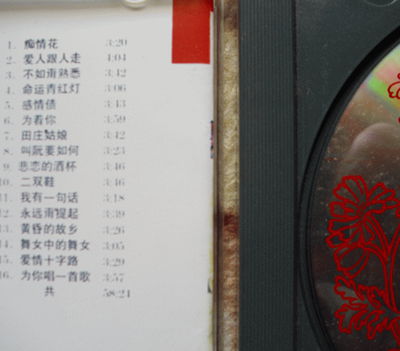 1. 痴情花 3:20
2. 爱人跟人走 4:04
3. 不如甭熟悉 3:42
4. 命运青红灯 3:06
5. 感情债 3:43
6. 为着你 3:59
7. 田庄姑娘 3:42
8. 叫阮要如何 3:23
9. 悲恋的酒杯 3:46
10. 二双鞋 3:46
11. 我有一句话 3:18
12. 永远甭提起 3:39
13. 黄昏的故乡 3:26
14. 舞女中的舞女 3:05
15. 爱情十字路 3:29
16. 为你唱一首歌 3:57
共 58:21